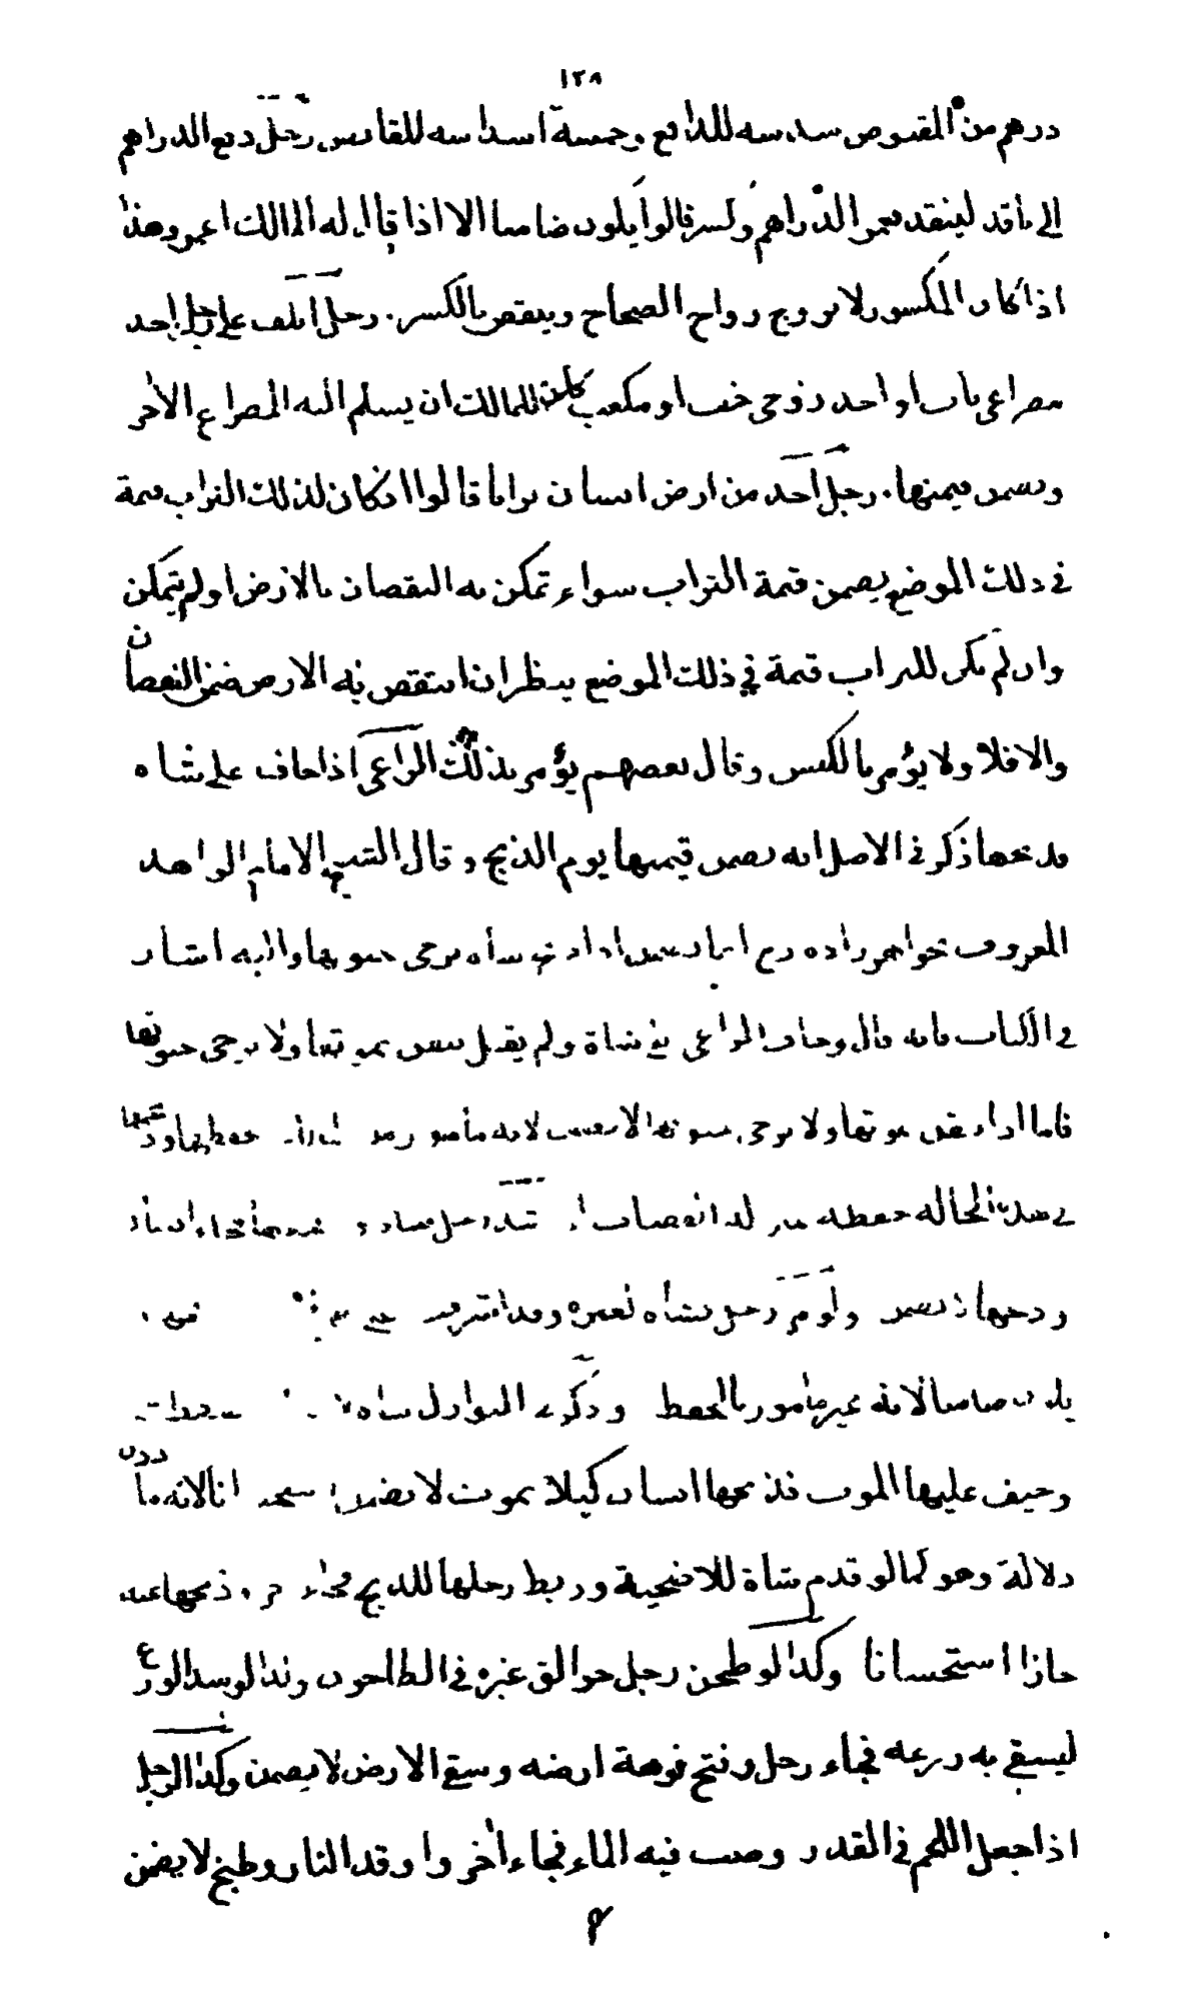 ١٢٨
درهم من المقبوض سدسه للدافع وخمسة اسداسه للقابض رجل دفع الدراهم
الى ناقد لينقد فغمز الدراهم وكسر قالوا يكون ضامنا الا اذا قال له المالك اغمز وهذا
اذا كان المكسور لا يروج رواج الصحاح وينقص بالكسر. رجل اتلف على رجل احد
مصراعي باب او احد زوجي خف او مكعب كان للمالك ان يسلم اليه المصراع الآخر
ويضمن قيمتها. رجل اخذ من ارض انسان ترابا قالوا ان كان لذلك التراب قيمة
في ذلك الموضع يضمن قيمة التراب سواء تمكن به النقصان بالارض او لم يتمكن
وان لم يكن للتراب قيمة في ذلك الموضع ينظر ان انتقص به الارض ضمن النقصان
والا فلا ولا يؤمر بالكبس وقال بعضهم يؤمر بذلك الراعي اذا خاف على شاة
فذبحها ذكر في الاصل انه يضمن قيمتها يوم الذبح وقال الشيخ الامام الزاهد
المعروف بخواهرزاده رح انما يضمن اذا ذبح شاة يرجى حيوتها واليه اشار
في الكتاب فانه قال وخاف الراعي على شاة ولم يقل تيقن بموتها ولا يرجى حيوتها
فاما اذا تيقن موتها ولا يرجى حيوتها لا يضمن لانه مأمور بحفظها
في هذه الحالة حفظه
وذبحها يضمن ولو مر رجل بشاة لغيره وقد اشرفت
يكون ضامنا لانه غير مأمور بالحفظ وذكر في النوازل شاة سقطت
وخيف عليها الموت فذبحها انسان كيلا تموت لا يضمن استحسانا لانه مأذون
دلالة وهو كما لو قدم شاة للاضحية وربط رجلها للذبح فجاء آخر وذبحها عنه
جاز استحسانا وكذا لو طحن رجل جوالق غيره في الطاحون وكذا لو سد الوزع
ليسقي به زرعه فجاء رجل وفتح فوهة ارضه وسقى الارض لا يضمن وكذا الرجل
اذا جعل اللحم في القدر وصب فيه الماء فجاء آخر واوقد النار وطبخ لا يضمن